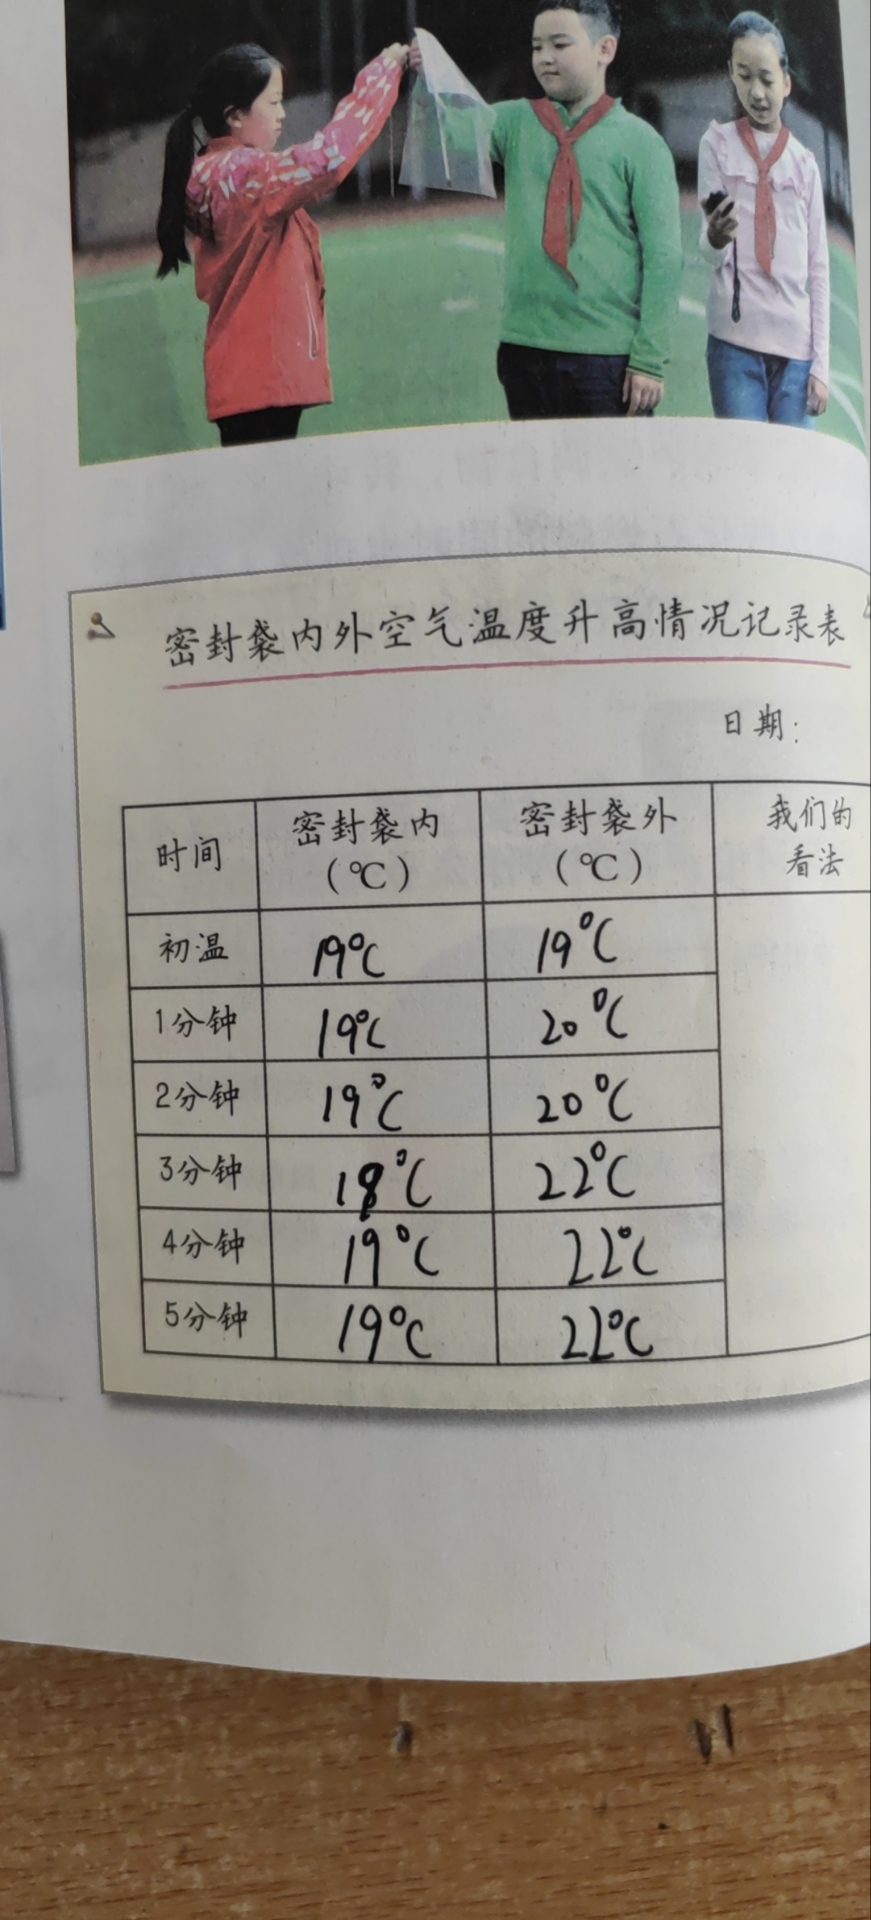 密封袋内外空气温度升高情况记录表
日期:
时间 密封袋内(℃) 密封袋外(℃) 我们的看法
初温 19℃ 19℃
1分钟 19℃ 20℃
2分钟 19℃ 20℃
3分钟 18℃ 22℃
4分钟 19℃ 22℃
5分钟 19℃ 22℃